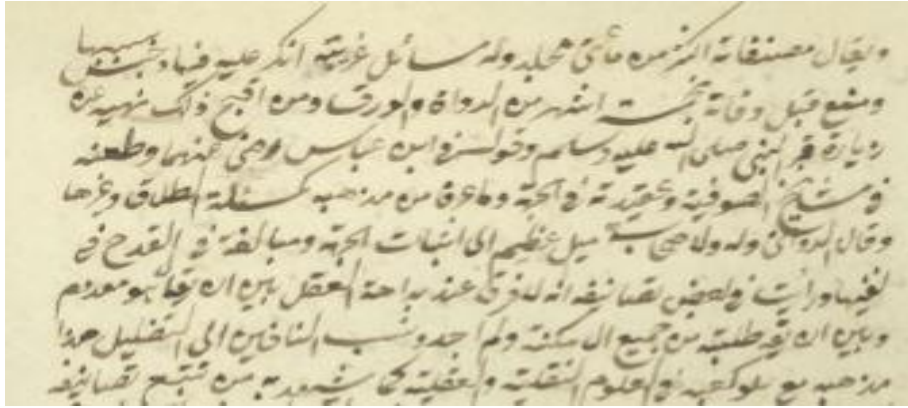 ويقال مصنفاته اكثر من مائتى مجلد وله مسائل غريبة انكر عليه فيها وحبس بسببها
ومنع قبل وفاته بخمسة اشهر من الدواة والورق ومن اقبح ذلك نهيه عن
زيارة قبر النبى صلى الله عليه وسلم وقوله فى ابن عباس رضى عنهما وطعنه
فى مشايخ الصوفية وعقيدته فى الجهة وما عرف من مذهبه كمسئلة الطلاق وغيرها
وقال الدوانى وله ولاصحابه ميل عظيم الى اثبات الجهة ومبالغة فى القدح فى
نفيها ورأيت فى بعض تصانيفه انه لا فرق عند بداهة العقل بين ان يقال هو معدوم
وبين ان يقال طلبته من جميع الامكنة ولم اجد ونسب النافين الى التضليل هذا
مذهبه مع علو كعبه فى العلوم النقلية والعقلية كما يشهد به من تتبع تصانيفه